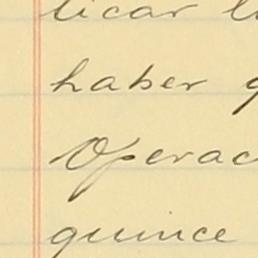 ticar l
haber q
Operac
quince